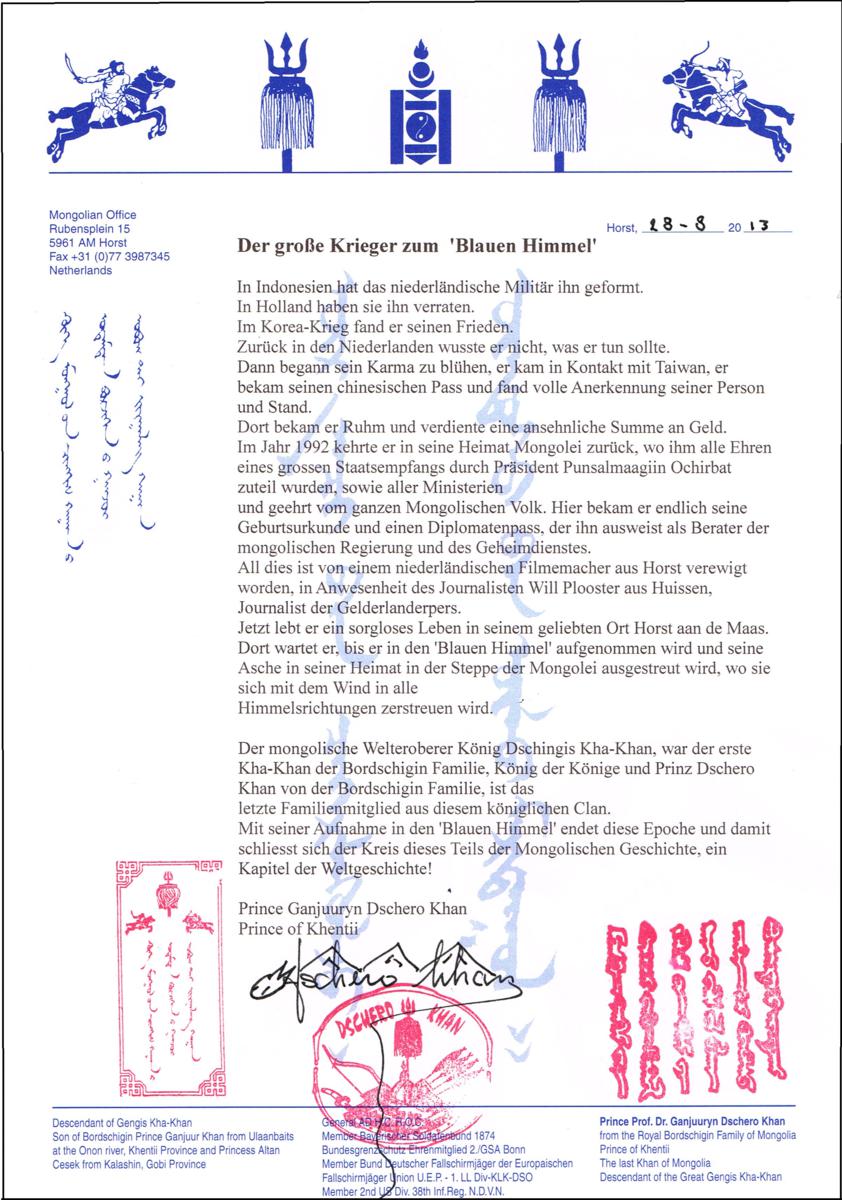 Mongolian Office
Rubensplein 15
5961 AM Horst
Fax +31 (0)77 3987345
Netherlands
Horst, 28-8 2013
Der große Krieger zum 'Blauen Himmel'
In Indonesien hat das niederländische Militär ihn geformt.
In Holland haben sie ihn verraten.
Im Korea-Krieg fand er seinen Frieden.
Zurück in den Niederlanden wusste er nicht, was er tun sollte.
Dann begann sein Karma zu blühen, er kam in Kontakt mit Taiwan, er
bekam seinen chinesischen Pass und fand volle Anerkennung seiner Person
und Stand.
Dort bekam er Ruhm und verdiente eine ansehnliche Summe an Geld.
Im Jahr 1992 kehrte er in seine Heimat Mongolei zurück, wo ihm alle Ehren
eines grossen Staatsempfangs durch Präsident Punsalmaagiin Ochirbat
zuteil wurden, sowie aller Ministerien
und geehrt vom ganzen Mongolischen Volk. Hier bekam er endlich seine
Geburtsurkunde und einen Diplomatenpass, der ihn ausweist als Berater der
mongolischen Regierung und des Geheimdienstes.
All dies ist von einem niederländischen Filmemacher aus Horst verewigt
worden, in Anwesenheit des Journalisten Will Plooster aus Huissen,
Journalist der Gelderlanderpers.
Jetzt lebt er ein sorgloses Leben in seinem geliebten Ort Horst aan de Maas.
Dort wartet er, bis er in den 'Blauen Himmel' aufgenommen wird und seine
Asche in seiner Heimat in der Steppe der Mongolei ausgestreut wird, wo sie
sich mit dem Wind in alle
Himmelsrichtungen zerstreuen wird.
Der mongolische Welteroberer König Dschingis Kha-Khan, war der erste
Kha-Khan der Bordschigin Familie, König der Könige und Prinz Dschero
Khan von der Bordschigin Familie, ist das
letzte Familienmitglied aus diesem königlichen Clan.
Mit seiner Aufnahme in den 'Blauen Himmel' endet diese Epoche und damit
schliesst sich der Kreis dieses Teils der Mongolischen Geschichte, ein
Kapitel der Weltgeschichte!
Prince Ganjuuryn Dschero Khan
Prince of Khentii
Dschero Khan
DSCHERO KHAN
Descendant of Gengis Kha-Khan
Son of Bordschigin Prince Ganjuur Khan from Ulaanbaits
at the Onon river, Khentii Province and Princess Altan
Cesek from Kalashin, Gobi Province
General AD H.C. R.O.C.
Member Bayerischer Soldatenbund 1874
Bundesgrenzschutz Ehrenmitglied 2./GSA Bonn
Member Bund Deutscher Fallschirmjäger der Europaischen
Fallschirmjäger Union U.E.P. - 1. LL Div-KLK-DSO
Member 2nd US Div. 38th Inf.Reg. N.D.V.N.
Prince Prof. Dr. Ganjuuryn Dschero Khan
from the Royal Bordschigin Family of Mongolia
Prince of Khentii
The last Khan of Mongolia
Descendant of the Great Gengis Kha-Khan